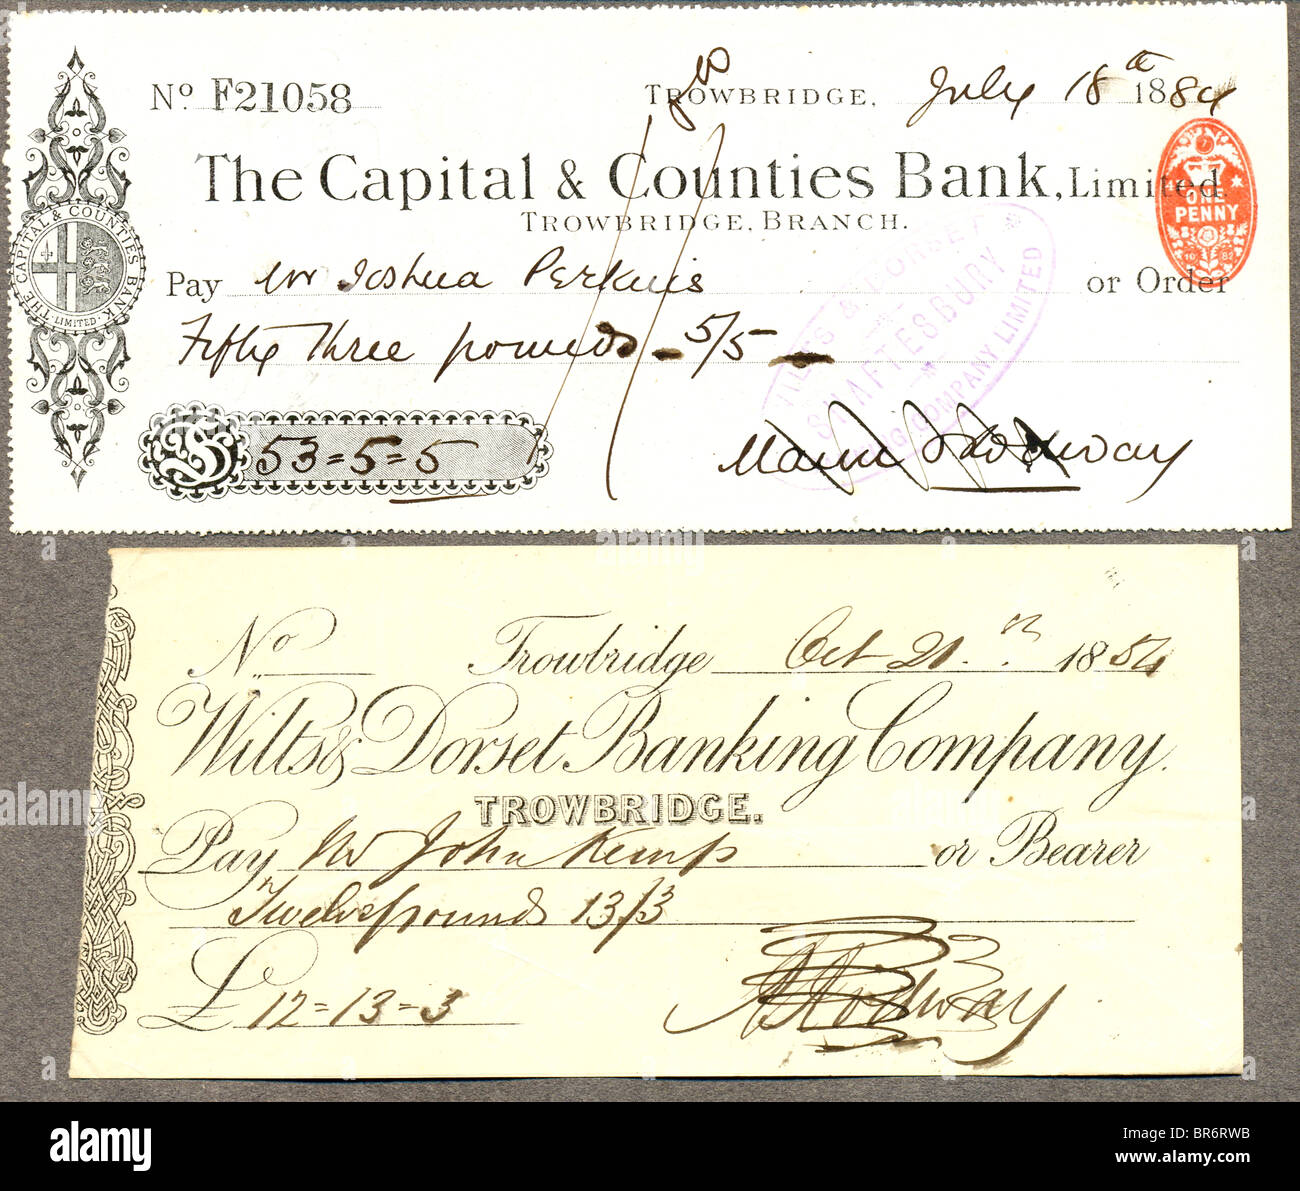 No F21058
TROWBRIDGE, July 18th 1884
The Capital & Counties Bank, Limited
TROWBRIDGE, BRANCH.
ONE
PENNY
THE CAPITAL & COUNTIES BANK
LIMITED
Pay Mr Joshua Perkins or Order
Fifty Three pounds - 5/5 -
£ 53=5=5
WILTS & DORSET
SHAFTESBURY
BANKING COMPANY LIMITED
No Trowbridge Oct 21 1854
Wilts & Dorset Banking Company.
TROWBRIDGE.
Pay Mr John Kemp or Bearer
Twelve pounds 13/3
£ 12=13=3
alamy
Image ID: BR6RWB
www.alamy.com